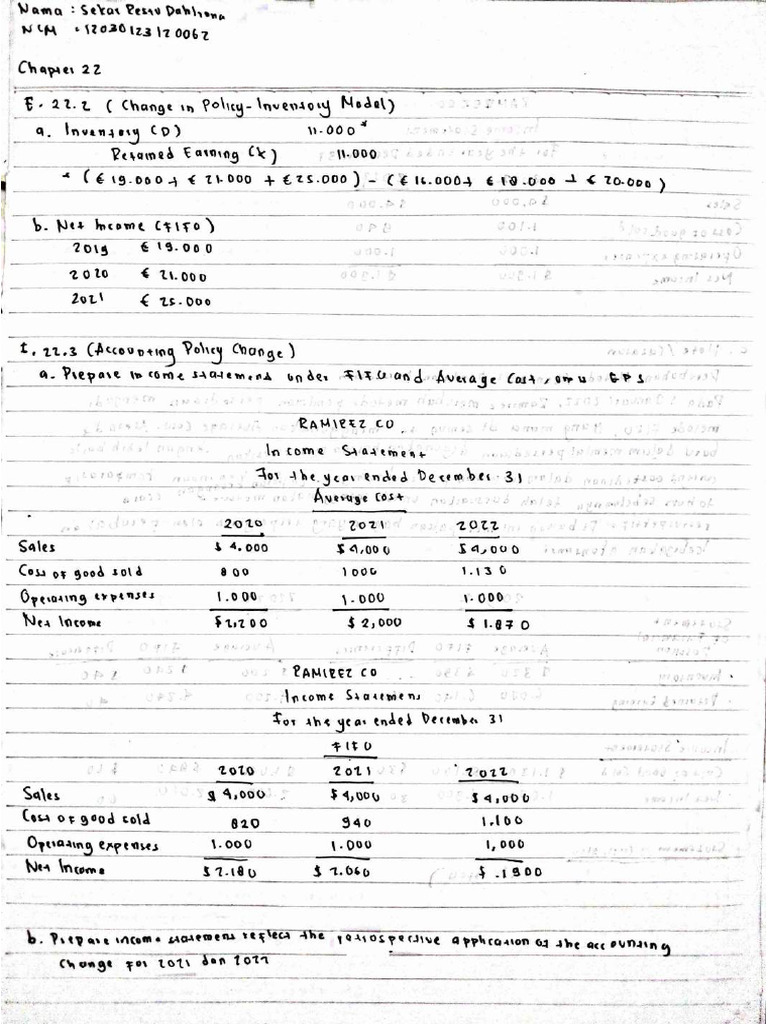 Nama : Sekar Restu Dahliana
NIM : 12030123120062
Chapter 22
E. 22.2 ( Change in Policy - Inventory Model)
a. Inventory (D) 11.000*
Retained Earning (K) 11.000
* (€ 19.000 + € 21.000 + € 25.000 ) - (€ 16.000 + € 18.000 + € 20.000 )
b. Net Income (FIFO)
2019 € 19.000
2020 € 21.000
2021 € 25.000
E. 22.3 (Accounting Policy Change)
a. Prepare income statement under FIFO and Average Cost, EPS
RAMIREZ CO
Income Statement
For the year ended December 31
Average cost
2020 2021 2022
Sales $ 4.000 $ 4,000 $ 4,000
Cost of good sold 800 1000 1.130
Operating expenses 1.000 1.000 1.000
Net Income $ 2,200 $ 2,000 $ 1.870
RAMIREZ CO
Income Statement
For the year ended December 31
FIFO
2020 2021 2022
Sales $ 4,000 $ 4,000 $ 4,000
Cost of good sold 820 940 1.100
Operating expenses 1.000 1.000 1,000
Net Income $ 2.180 $ 2.060 $ .1900
b. Prepare income statement reflect the retrospective application of the accounting
change for 2021 dan 2022